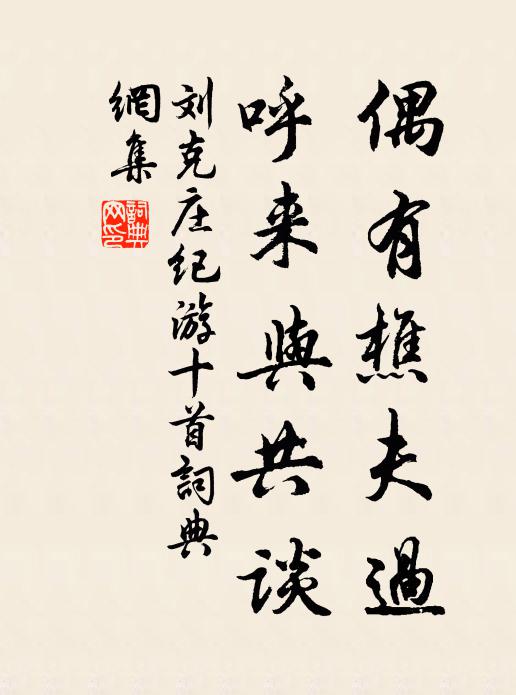 偶有樵夫過
呼来與共談
刘克庄纪游十首詞典
網集
詞典
网印